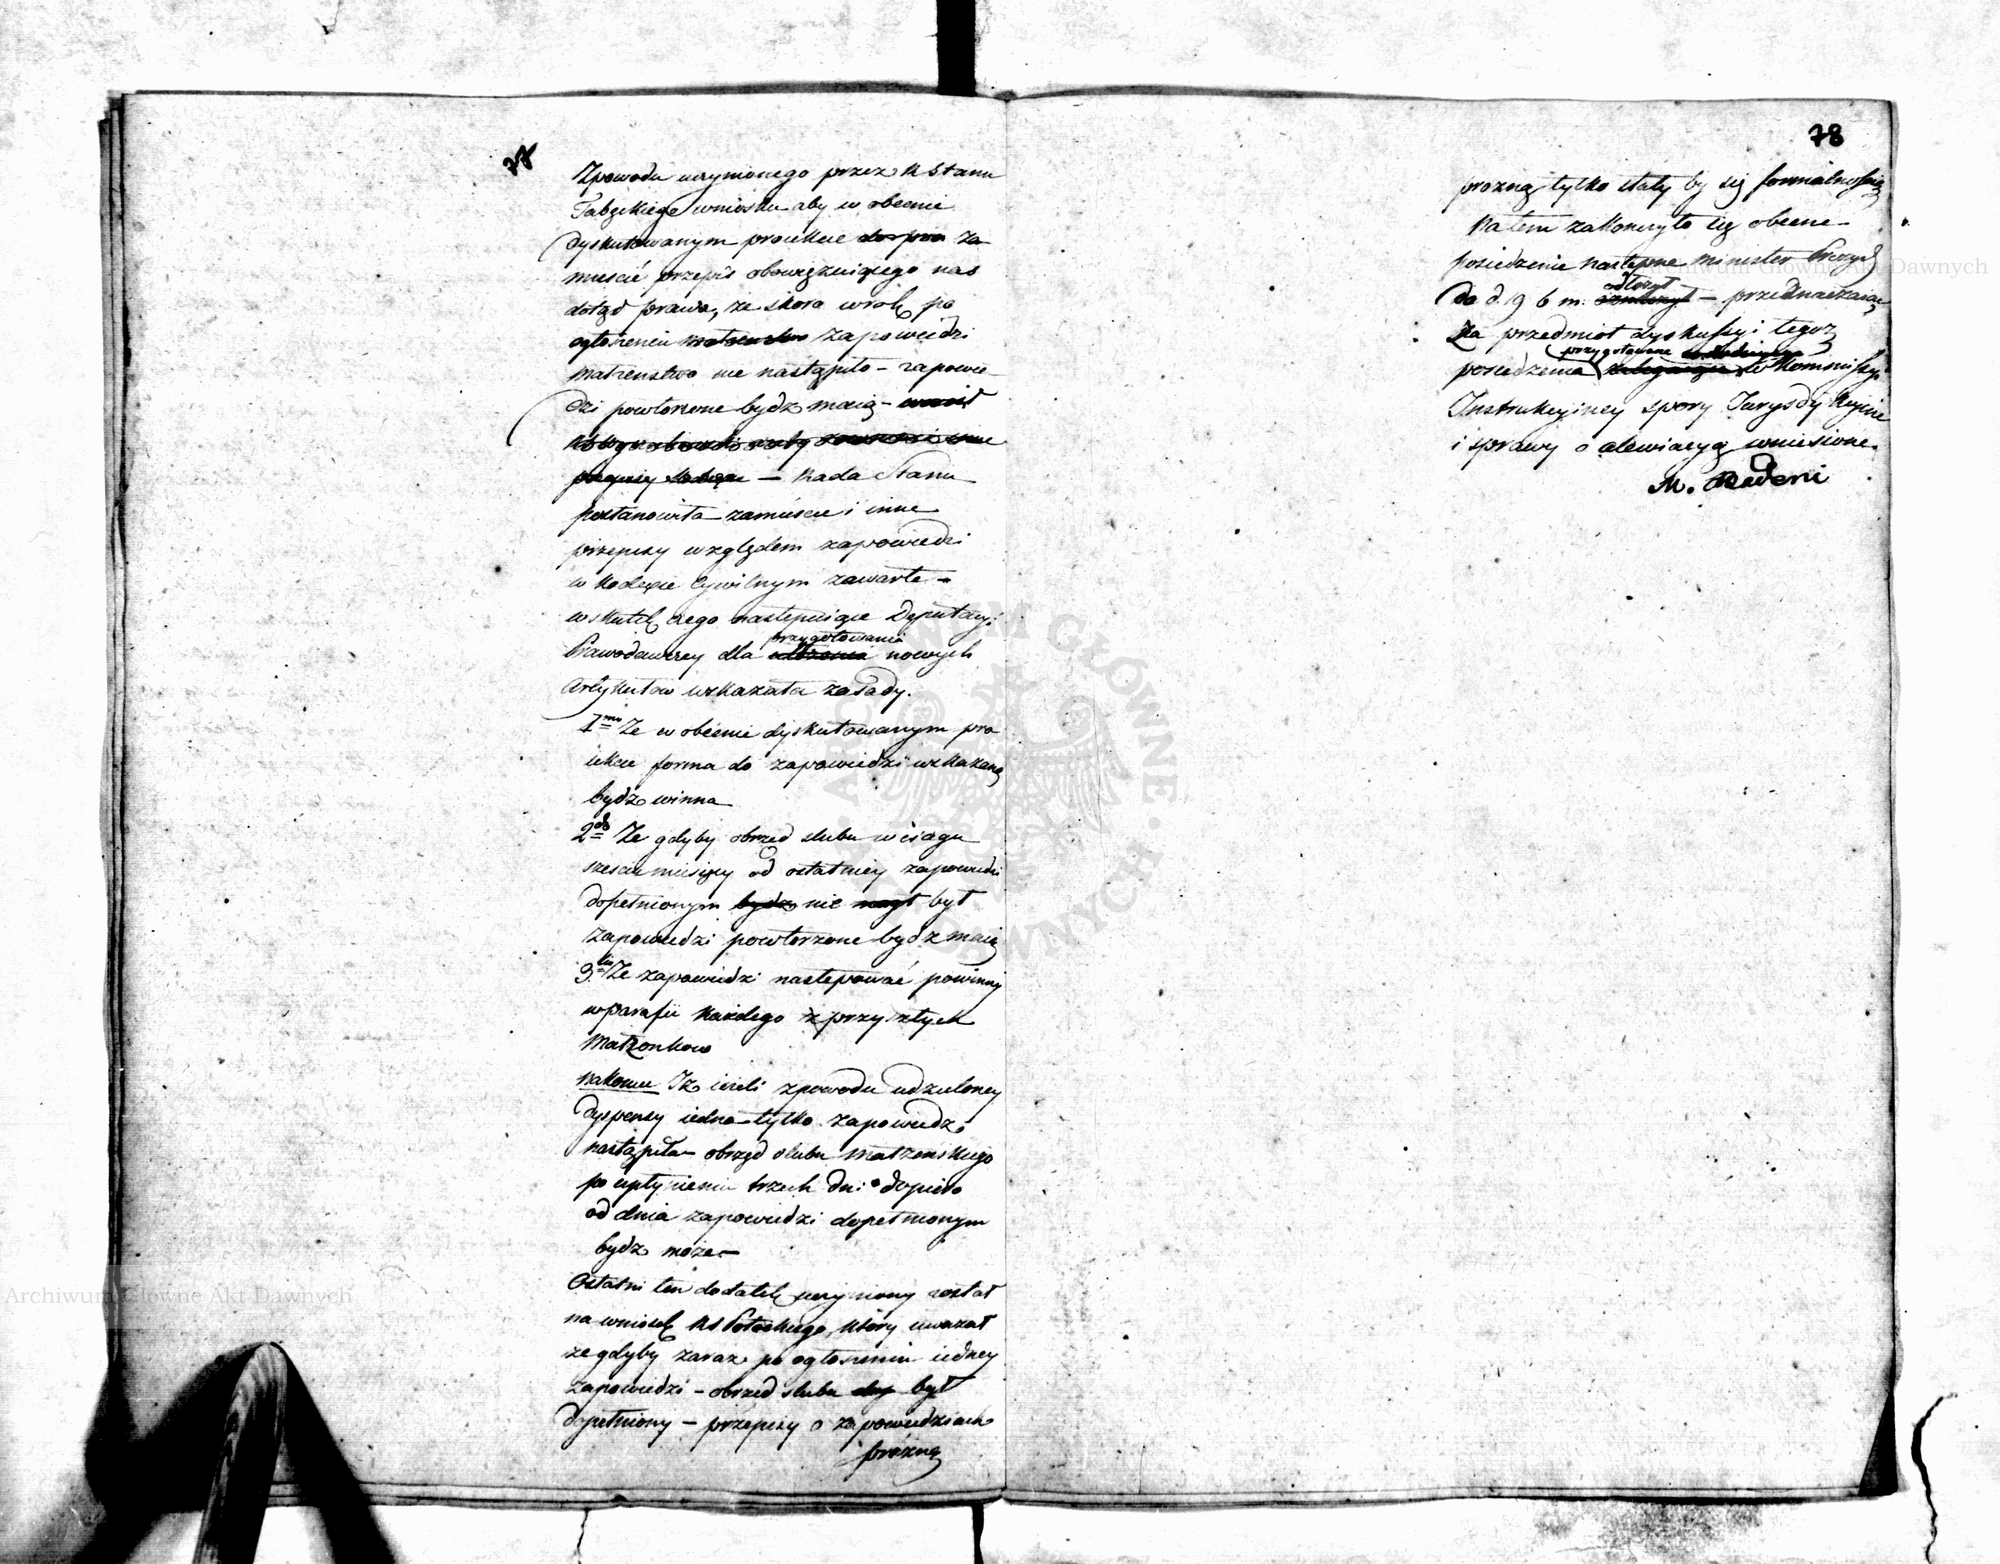 78
Zpowodu uczynionego przez R Stanu
wniosku aby w obecnie
dyskutowanym proiekcie za
mieścić przepis obowięzuiącego nas
dotąd prawa, że skoro w rok po
ogłoszeniu zapowiedzi
małzenstwo nie nastąpiło – zapowie
dzi powtorzone bydz maią –
– Rada Stanu
postanowiła zamieścić i inne
przepisy względem zapowiedzi
w Kodexie Cywilnym zawarte –
wskutek czego następuiące Deputacyi
przygotowania
Prawodawczey dla nowych
artykułow wskazała zasady.
1mo Że w obecnie dyskutowanym pro
iekcie forma do zapowiedzi wskazaną
bydz winna
2do Że gdyby obrzęd slubu w ciągu
szesciu miesięcy od ostatniey zapowiedzi
dopełnionym bydz nie mogł był
zapowiedzi powtorzone bydz maią
3tio Że zapowiedzi następować powinny
w parafii każdego z przyszłych
Małzonkow
nakoniec Iż ieżeli zpowodu udzieloney
dyspensy iedna tylko zapowiedz
nastąpiła – obrzęd slubu małzenskiego
po upłynieniu trzech dni dopiero
od dnia zapowiedzi dopełnionym
bydz może –
Ostatni ten dodatek uczyniony został
na wniosek RS Potockiego, który uważał
że gdyby zaraz po ogłoszeniu iedney
zapowiedzi – obrzęd slubu był
dopełniony – przepisy o zapowiedziach
prózną
78
prozną tylko stały by się formalnością
Na tem zakonczyło się obecne
posiedzenie następne Minister Prezyd
odłożył
do d. 19 b m. – przeznaczaiąc
Za przedmiot dyskussyi tegoż
przygotowane
posiedzenia w Kommissyi
Instrukcyiney spory Jurysdykcyine
i sprawy o alewiacyą wniesione.
M. Badeni
Archiwum Główne Akt Dawnych
Archiwum Główne Akt Dawnych
ARCHIWUM GŁÓWNE AKT DAWNYCH